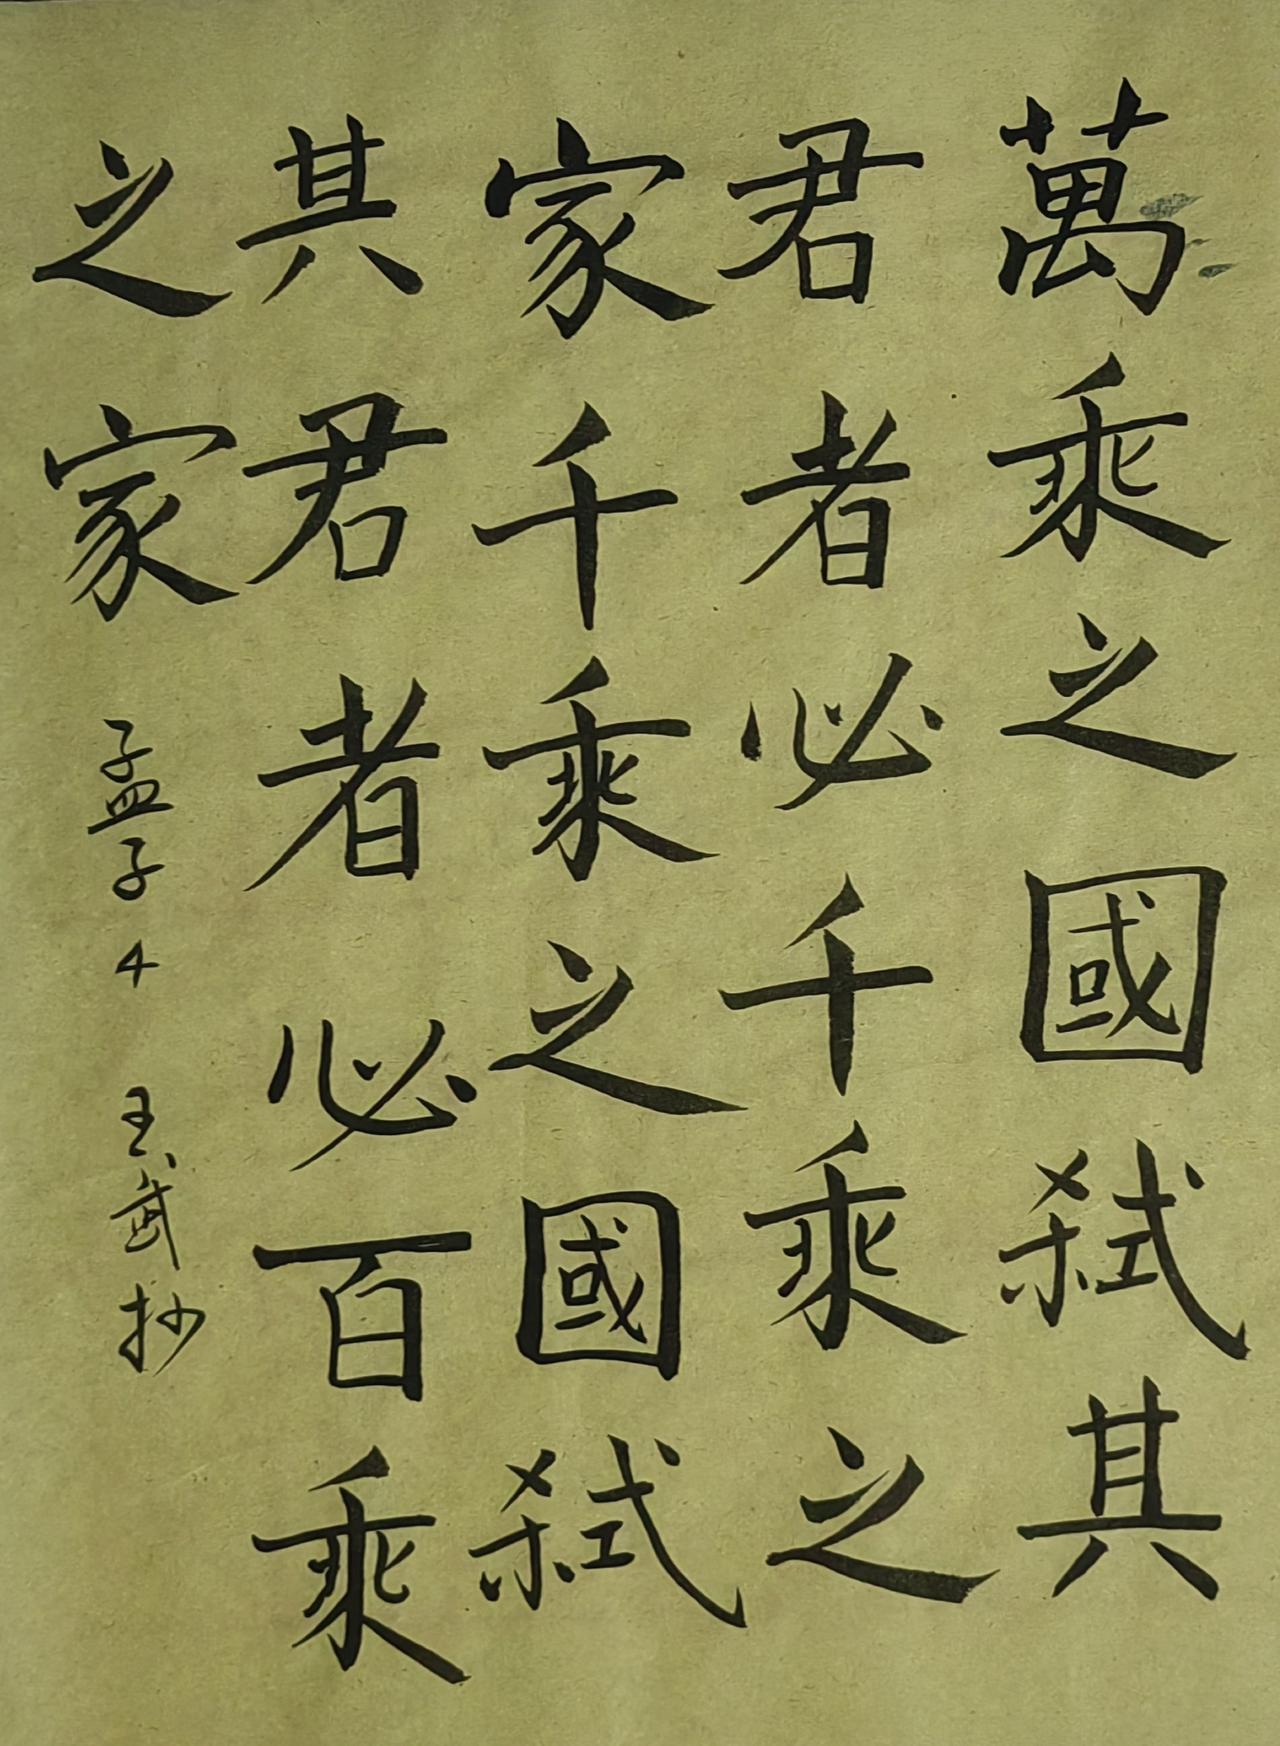 萬乘之國弒其
君者必千乘之
家千乘之國弒
其君者必百乘
之家
孟子4 王武抄